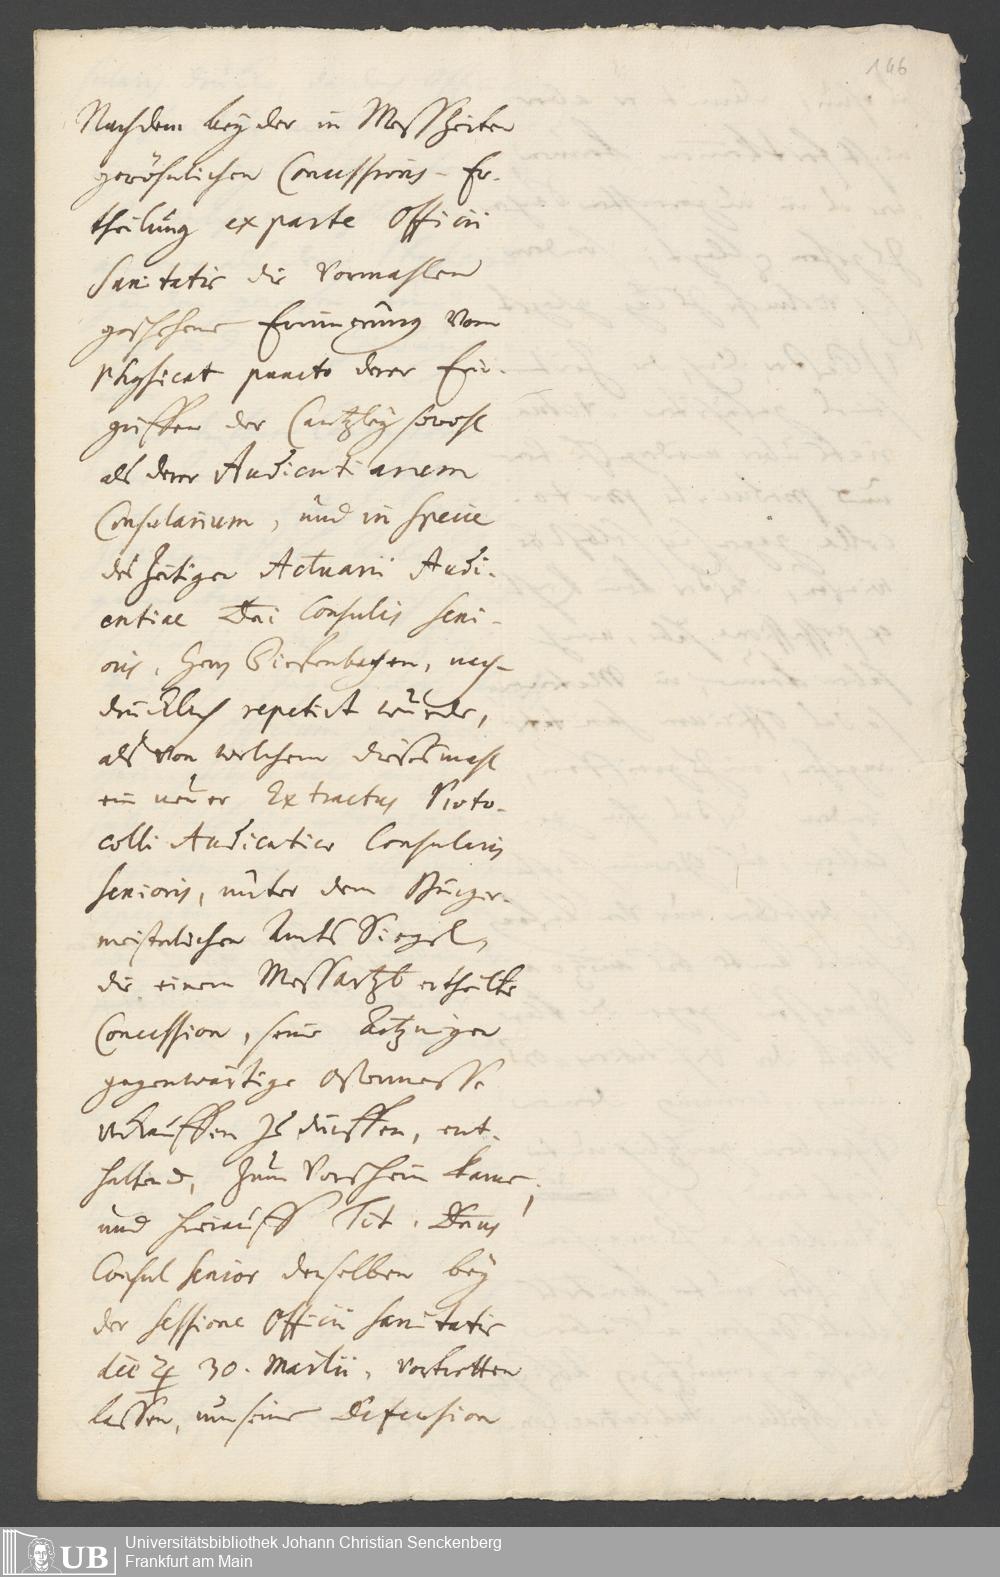 146
Nachdem bey der in Messzeiten
gewöhnlichen Concessions-Er-
theilung ex parte Officii
Sanitatis die vormahlen
geschehene Erinnerung vom
Physicat puncto derer Ein-
griffen der Cantzley sowohl
als derer Audientiarum
Consularium, und in specie
des zeitigen Actuarii Audi-
entiae Dni Consulis Seni-
oris, Herrn, nach-
drücklich repetirt wurde,
als von welchem diesesmahl
ein neuer Extractus Proto-
colli Audientiae Consularis
Senioris, unter dem Burger-
meisterlichen Amts Siegel,
die einem Messartzt ertheilte
Concession, seine Artzneyen
gegenwärtige Ostermesse
verkauffen zu dürffen, ent-
haltend, zum Vorschein kame;
und hierauff Tit. Dnus
Consul Senior denselben bey
der Sessione Officii Sanitatis
die ♃ 30. Martii, vortretten
lassen, um seine Defension
UB
Universitätsbibliothek Johann Christian Senckenberg
Frankfurt am Main